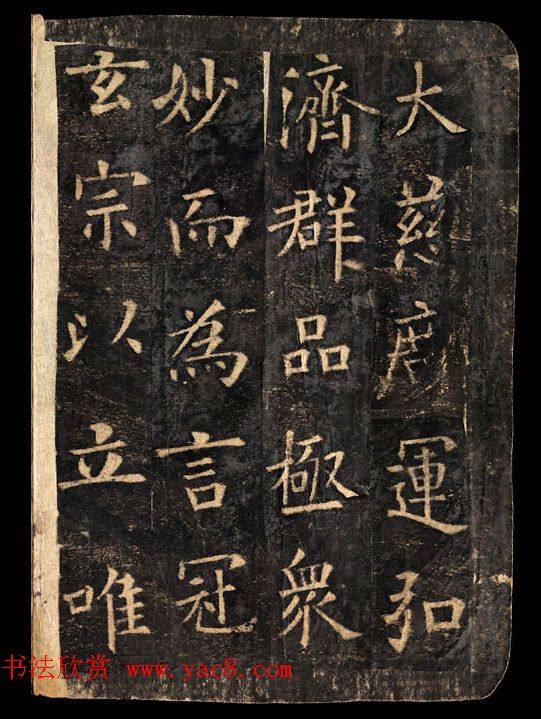 大慈庶運弘
濟群品極眾
妙而為言冠
玄宗以立唯
书法欣赏 www.yac8.com